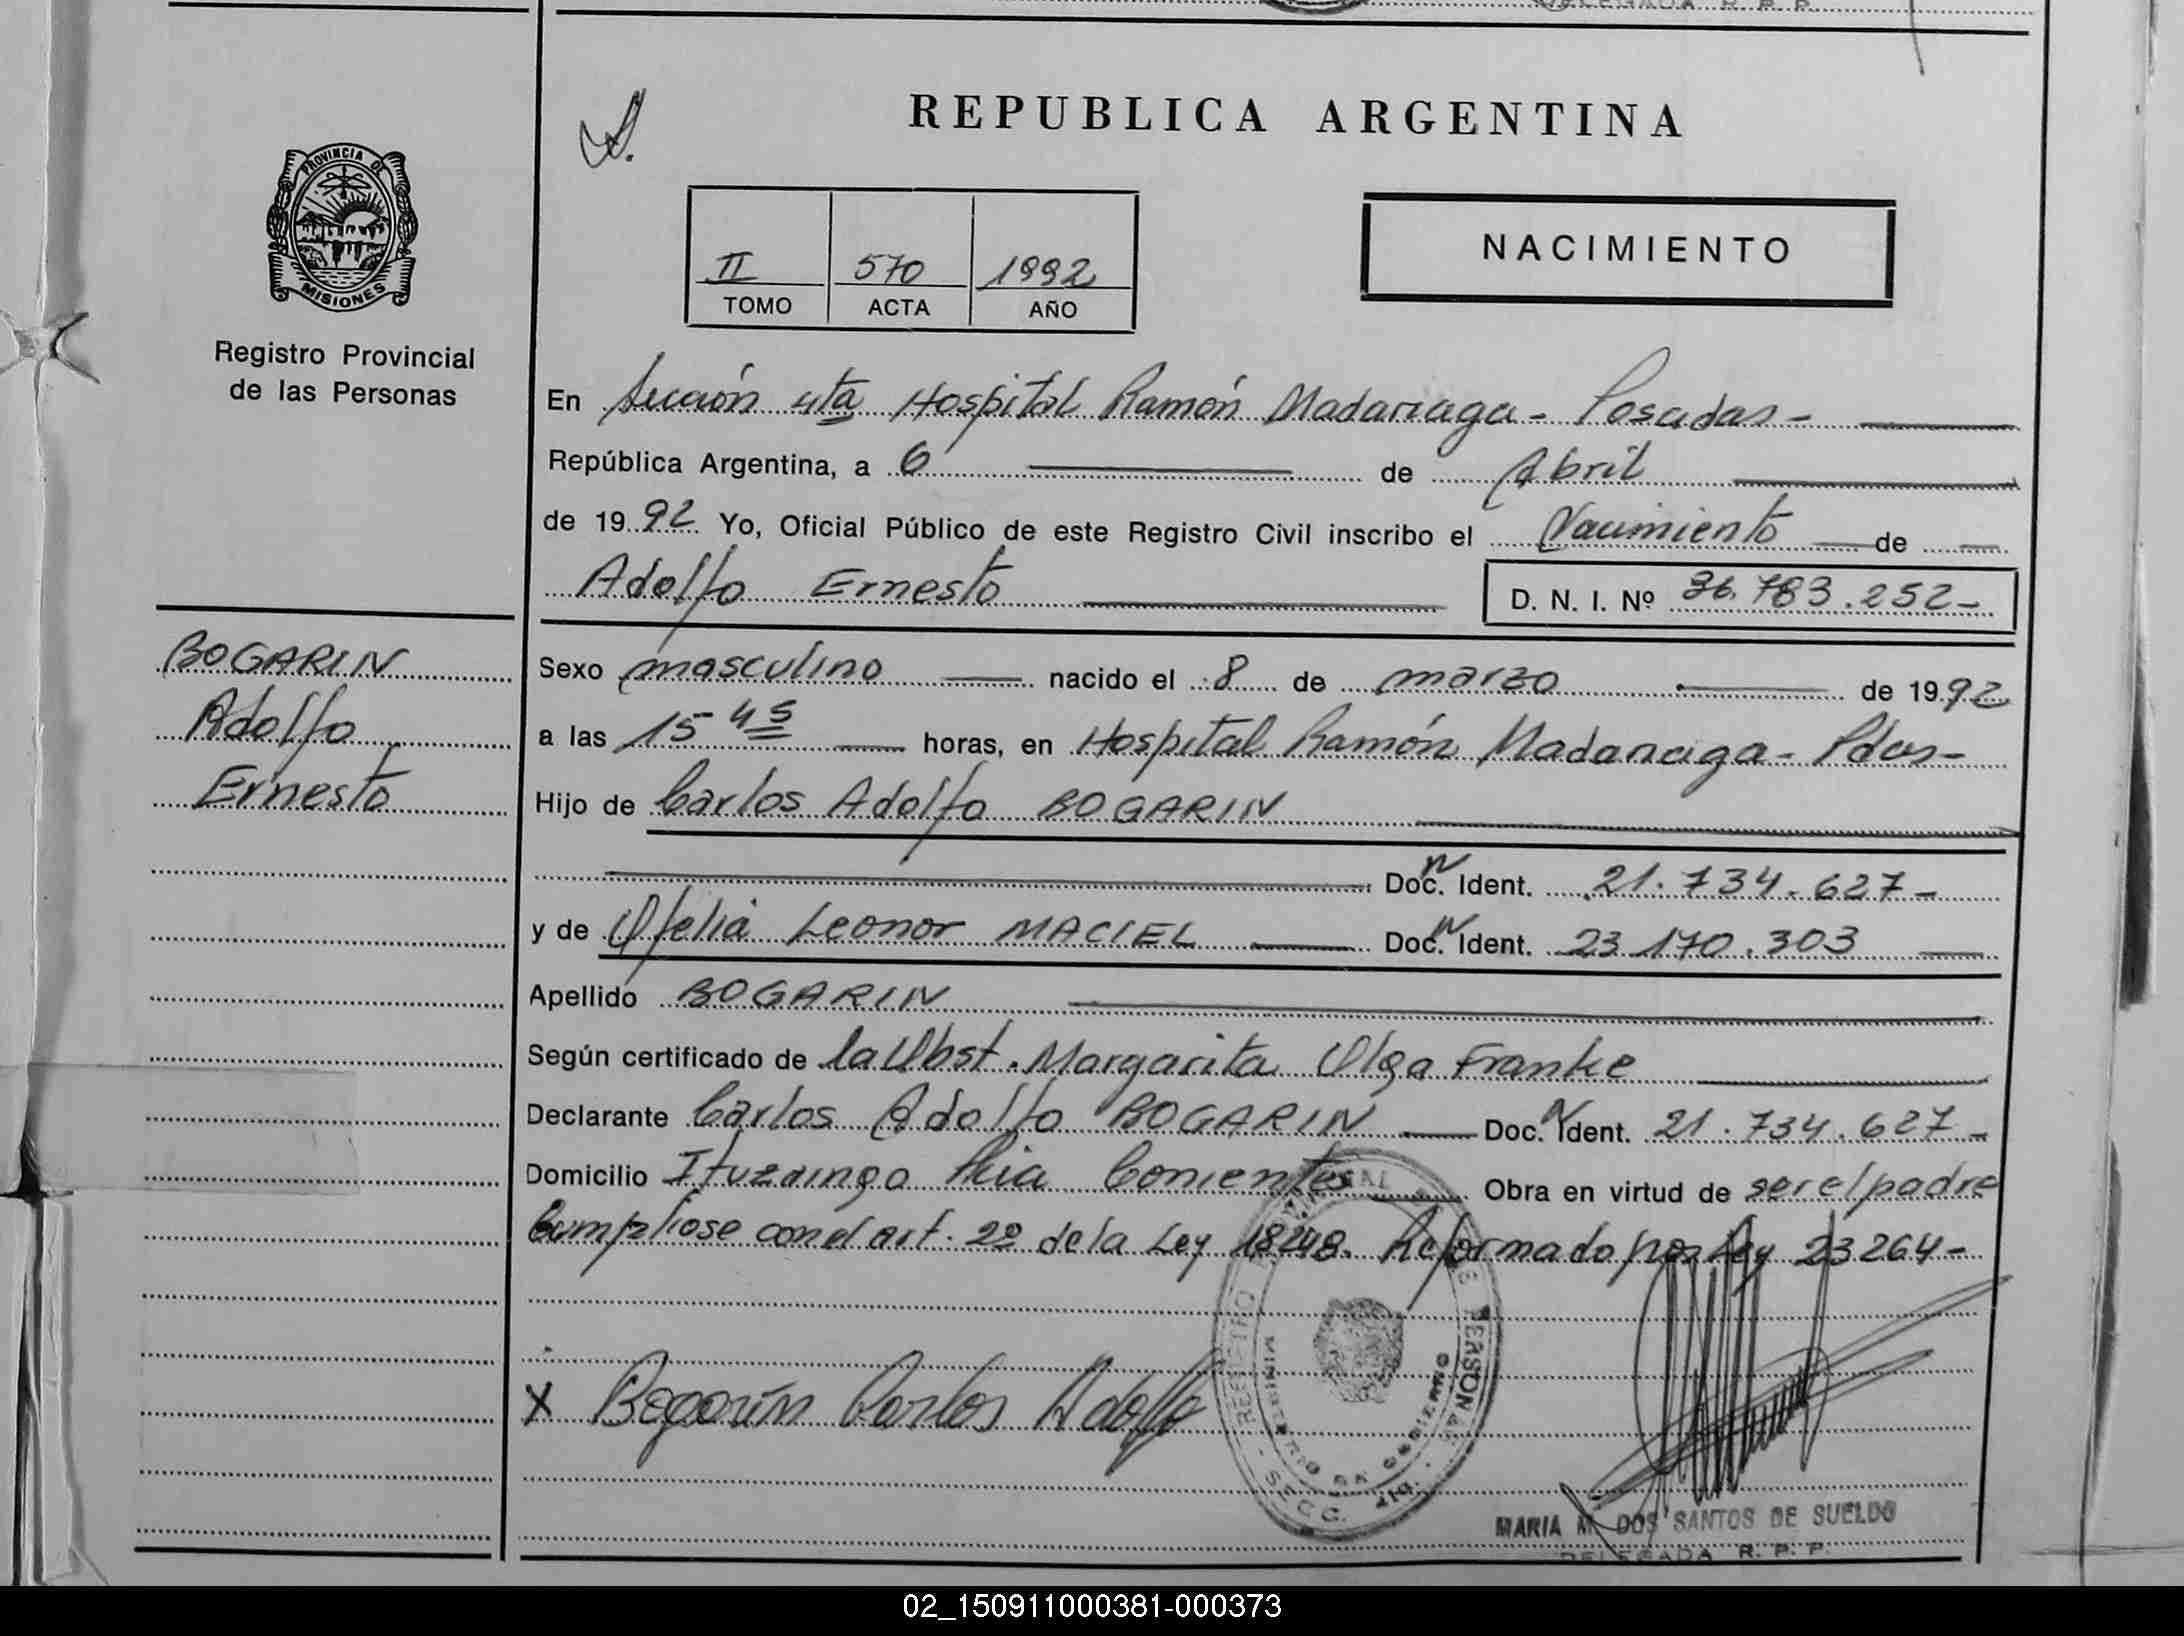 DELEGADA R. P. P.
REPUBLICA ARGENTINA
PROVINCIA DE
MISIONES
Registro Provincial
de las Personas
II 570 1992
TOMO ACTA AÑO
NACIMIENTO
En Sección 4ta Hospital Ramón Madariaga - Posadas -
República Argentina, a 6 de Abril
de 1992 Yo, Oficial Público de este Registro Civil inscribo el Nacimiento de
Adolfo Ernesto D. N. I. Nº 36.783.252-
BOGARIN
Adolfo
Ernesto
Sexo masculino nacido el 8 de marzo de 1992
a las 15 45 horas, en Hospital Ramón Madariaga - Pdas -
Hijo de Carlos Adolfo BOGARIN
Doc. Ident. 21.734.627-
y de Ofelia Leonor MACIEL Doc. Ident. 23.170.303
Apellido BOGARIN
Según certificado de la Obst. Margarita Olga Franke
Declarante Carlos Adolfo BOGARIN Doc. Ident. 21.734.627-
Domicilio Ituzaingo Pcia Corrientes Obra en virtud de ser el padre
Cumpliose con el art. 2º de la Ley 18248. Reformado por Ley 23264-
X Bogarín Carlos Adolfo
MARIA M. DOS SANTOS DE SUELDO
DELEGADA R. P. P.
02_150911000381-000373